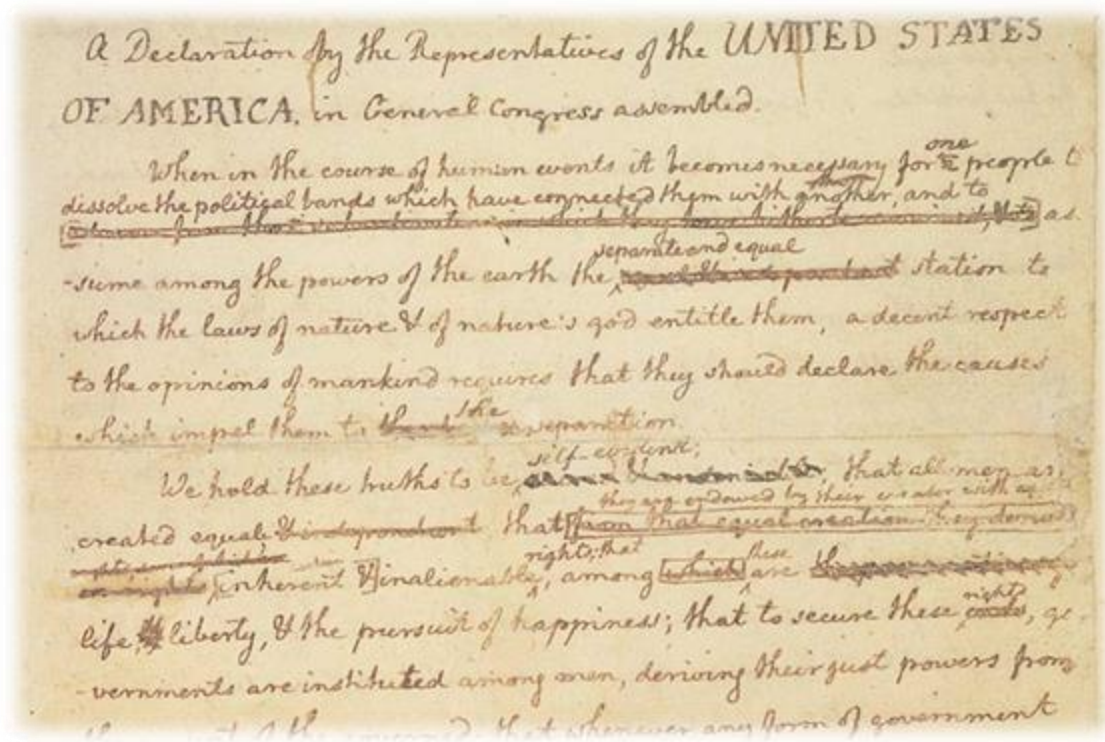 A Declaration by the Representatives of the UNITED STATES
OF AMERICA, in General Congress assembled.
When in the course of human events it becomes necessary for one people to
dissolve the political bands which have connected them with another, and to
as
-sume among the powers of the earth the separate and equal station to
which the laws of nature & of nature's god entitle them, a decent respect
to the opinions of mankind requires that they should declare the causes
which impel them to the separation.
We hold these truths to be self-evident; that all men are
created equal & independent that they are endowed by their creator with
from that equal creation they derive
rights; that
inherent & inalienable, among which these are
life & liberty, & the pursuit of happiness; that to secure these rights, go
-vernments are instituted among men, deriving their just powers from
that whenever any form of government